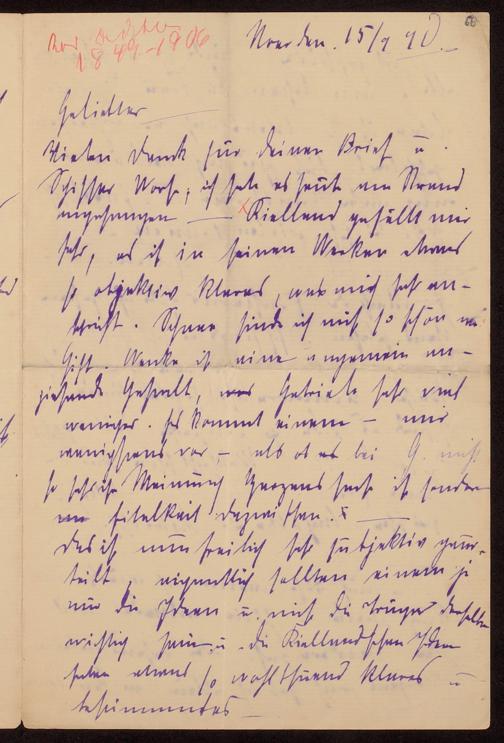 nor. Dichter
1849–1906
Noorden. 15/9 90.
60
Geliebter
Vielen Dank für deinen Brief u.
Schiffer Worse, ich habe es heute am Strand
angefangen — Kielland gefällt mir
sehr, es ist in seinen Werken etwas
so objektiv klares, was mich sehr an-
spricht. Schnee finde ich nicht so schön wie
Gift. Wenke ist eine ungemein an-
ziehende Gestalt, Gabriele sehr viel
weniger. Es kommt einem – mir
wenigstens vor – als ob es bei G. nicht
so sehr ihre Meinung Herzenssache ist sondern
Eitelkeit dazwischen. x —
Das ist nun freilich sehr subjektiv geur-
teilt, eigentlich sollten einem ja
nur die Ideen u. nicht die Träger derselben
wichtig sein, u. die Kiellandschen Ideen
haben etwas so wohlthuend klares u
bestimmtes